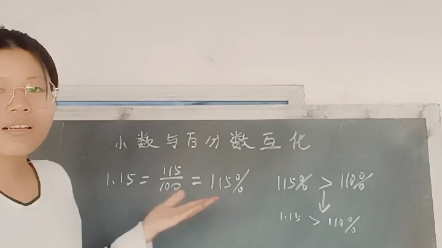 小数与百分数互化
1.15 = 115/100 = 115%
115% > 110%
1.15 > 110%